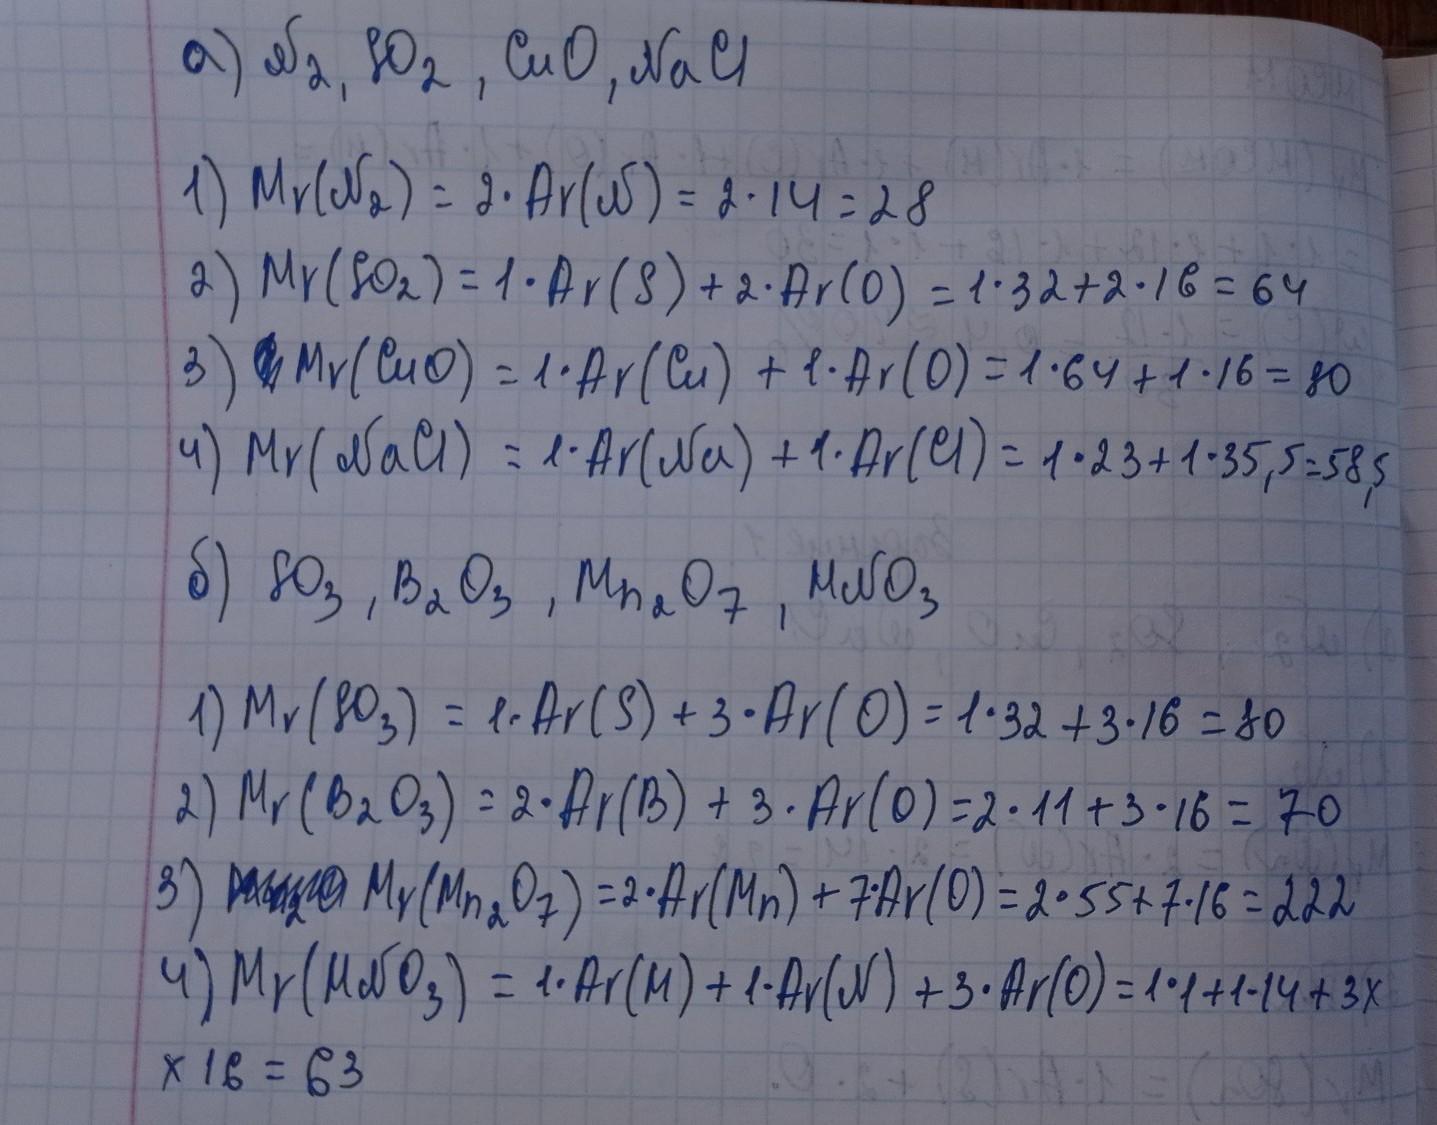 а) N₂, SO₂, CuO, NaCl
1) Mr(N₂) = 2·Ar(N) = 2·14 = 28
2) Mr(SO₂) = 1·Ar(S) + 2·Ar(O) = 1·32+2·16 = 64
3) Mr(CuO) = 1·Ar(Cu) + 1·Ar(O) = 1·64+1·16 = 80
4) Mr(NaCl) = 1·Ar(Na) + 1·Ar(Cl) = 1·23+1·35,5=58,5
б) SO₃, B₂O₃, Mn₂O₇, HNO₃
1) Mr(SO₃) = 1·Ar(S) + 3·Ar(O) = 1·32 + 3·16 = 80
2) Mr(B₂O₃) = 2·Ar(B) + 3·Ar(O) = 2·11 + 3·16 = 70
3) Mr(Mn₂O₇) = 2·Ar(Mn) + 7·Ar(O) = 2·55+7·16 = 222
4) Mr(HNO₃) = 1·Ar(H) + 1·Ar(N) + 3·Ar(O) = 1·1+1·14+3×
×16 = 63